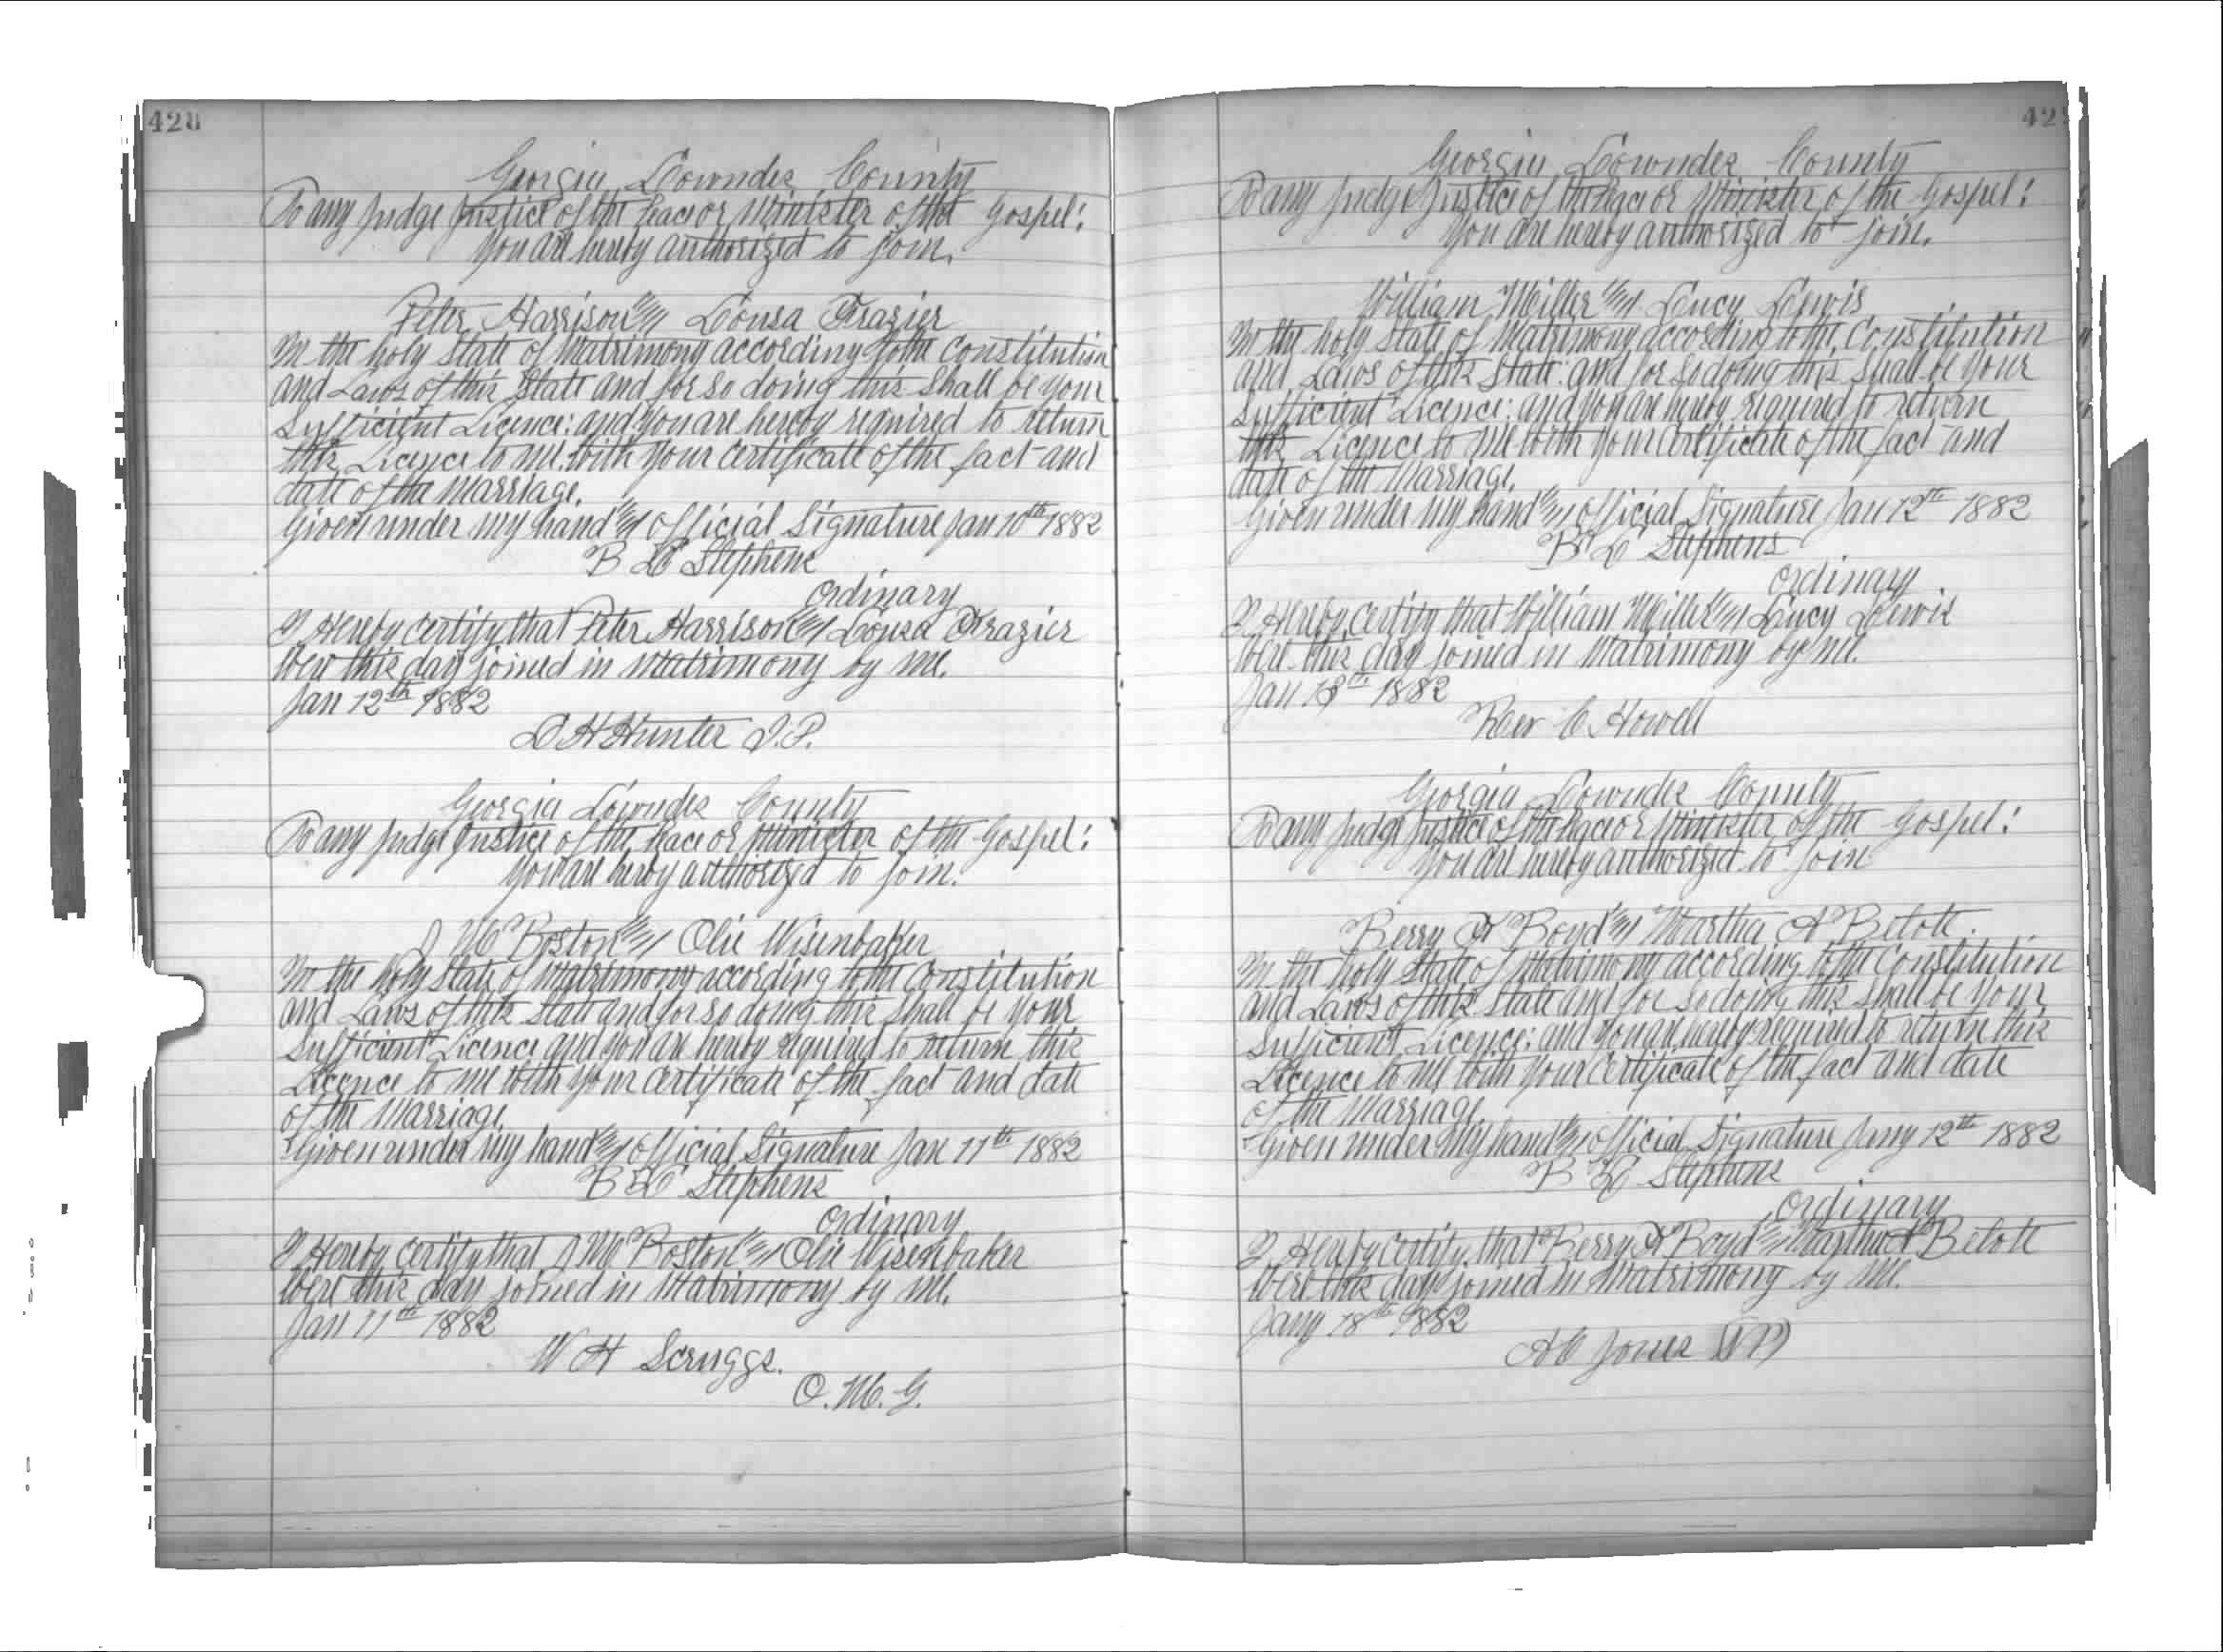 428
Georgia Lowndes County
To any Judge Justice of the Peace or Minister of the Gospel:
You are hereby authorized to join.
Peter Harrison and Lousa Frazier
In the holy State of Matrimony according to the Constitution
and Laws of this State and for so doing this Shall be your
Sufficient Licence: and you are hereby required to return
this Licence to me with your Certificate of the fact and
date of the Marriage.
Given under my hand and official Signature Jan 10th 1882
B L Stephens
Ordinary
I Hereby Certify that Peter Harrison and Lousa Frazier
Wer this day joined in Matrimony by me.
Jan 12th 1882
D H Hunter J.P.
Georgia Lowndes County
To any Judge Justice of the Peace or Minister of the Gospel:
You are hereby authorized to join.
J M Boston and Olie Wisenbaker
In the holy State of Matrimony according to the Constitution
and Laws of this State and for so doing this Shall be your
Sufficient Licence and you are hereby required to return this
Licence to me with your Certificate of the fact and date
of the Marriage.
Given under my hand and official Signature Jan 11th 1882
B L Stephens
Ordinary
I Hereby Certify that J M Boston and Olie Wisenbaker
Were this day joined in Matrimony by me.
Jan 11th 1882
W H Scruggs.
O. M. G.
42
Georgia Lowndes County
To any Judge Justice of the Peace or Minister of the Gospel:
You are hereby authorized to join.
William Miller and Lucy Lewis
In the holy State of Matrimony according to the Constitution
and Laws of this State: and for so doing this Shall be your
Sufficient Licence: and you are hereby required to return
this Licence to me with your Certificate of the fact and
date of the Marriage.
Given under my hand and official Signature Jan 12th 1882
B L Stephens
Ordinary
I Hereby Certify that William Miller and Lucy Lewis
Were this day joined in Matrimony by me.
Jan 1882
Rev C Howell
Georgia Lowndes County
To any Judge Justice of the Peace or Minister of the Gospel:
You are hereby authorized to join
Berry H Boyd and Martha A Belote.
In the holy State of Matrimony according to the Constitution
and Laws of this State and for so doing this Shall be your
Sufficient Licence: and you are hereby required to return this
Licence to me with your Certificate of the fact and date
of the Marriage
Given under my hand and official Signature Jany 12th 1882
B L Stephens
Ordinary
I Hereby Certify that Berry H Boyd and Martha A Belote
Were this day joined in Matrimony by me.
Jany 18th 1882
A C Jones